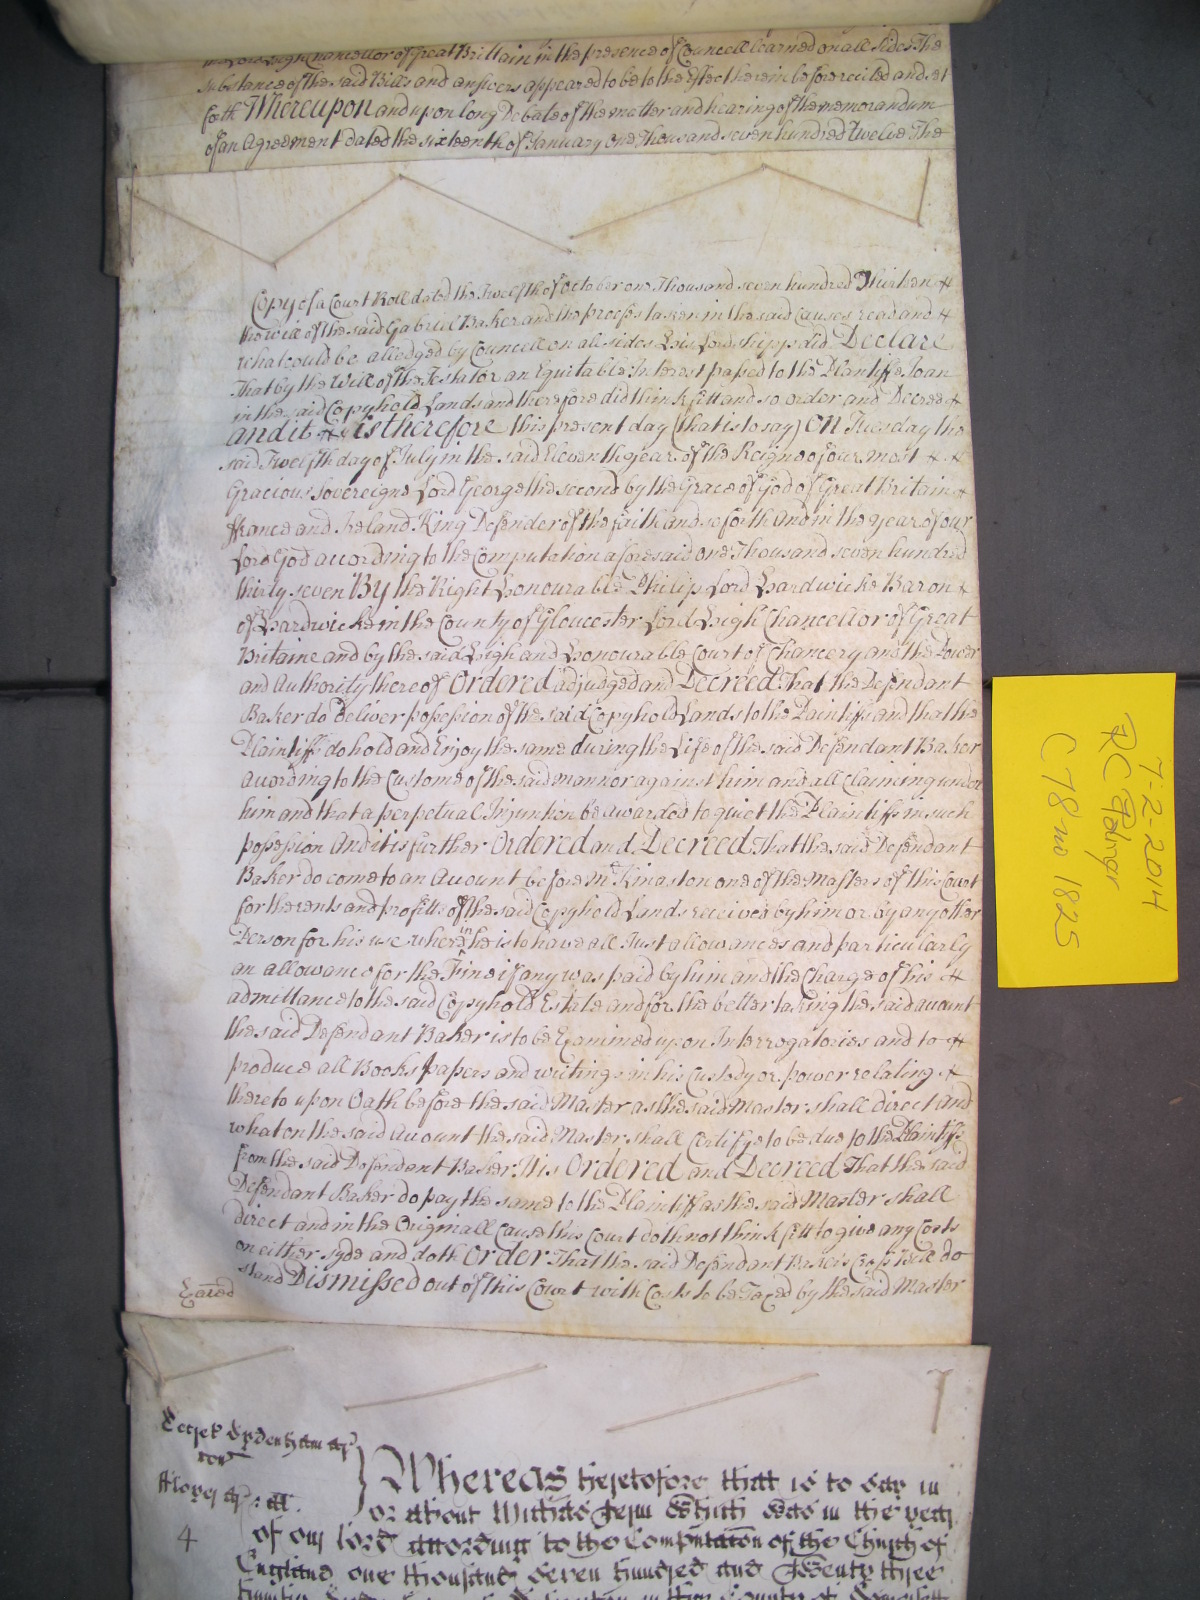 Lord High Chancellor of Great Brittain in the presence of Councell learned on all sides The
substance of the said Bills and answers appeared to be to the Effect herein before recited and set
forth Whereupon and upon long Debate of the matter and hearing of the memorandum
of an Agreement dated the sixteenth of January one Thousand seven hundred Twelve The
Copy of a Court Roll dated the Twelfth of October one Thousand seven hundred Thirteen
the will of the said Gabriel Baker and the proofs taken in the said Causes read and
what could be alledged by Councell on all sides His Lordshipp did Declare
That by the Will of the Testator an Equitable Interest passed to the Plaintiffe Joan
in the said Copyhold Lands and therefore did think fitt and so order and Decree
and it is therefore this present day (that is to say) on Tuesday the
said Twelfth day of July in the said Eleventh year of the Reigne of our most
Gracious Sovereigne Lord George the second by the Grace of God of Great Britain
ffrance and Ireland King Defender of the faith and so forth And in the year of our
Lord God according to the Computation aforesaid one Thousand seven hundred
thirty seven By the Right Honourable Philip Lord Hardwicke Baron
of Hardwicke in the County of Gloucester Lord High Chancellor of Great
Britaine and by the said High and Honourable Court of Chancery and the Power
and Authority thereof Ordered adjudged and Decreed That the Defendant
Baker do Deliver possession of the said Copyhold Lands to the Plaintiffs and that the
Plaintiffs do hold and Enjoy the same during the Life of the said Defendant Baker
according to the Custome of the said mannor against him and all claiming under
him and that a perpetual Injuntion be awarded to quiet the Plaintiffs in such
possession And it is further Ordered and Decreed That the said Defendant
Baker do come to an Account before Mr Kinaston one of the Masters of this Court
for the rents and profitts of the said Copyhold Lands received by him or by any other
Person for his use wherein he is to have all Just allowances and particularly
an allowance for the Fine if any was paid by him and the Charge of his
admittance to the said Copyhold Estate and for the better taking the said account
the said Defendant Baker is to be Examined upon Interrogatories and to
produce all Books papers and writings in his Custody or power relating
thereto upon Oath before the said Master as the said Master shall direct and
what on the said Account the said Master shall Certifye to be due to the Plaintiffs
from the said Defendant Baker It is Ordered and Decreed That the said
Defendant Baker do pay the same to the Plaintiff as the said Master shall
direct and in the Originall Cause this Court doth not think fitt to give any Costs
on either syde and doth Order That the said Defendant Baker's Cross Bill do
stand Dismissed out of this Court with Costs to be Taxed by the said Master
7-2-2014
RC Palmer
C78 no 1825
4
Whereas heretofore that is to say in
or about Michas Term which was in the year
of our Lord according to the Computacon of the Church of
England one thousand seven hundred and Twenty three